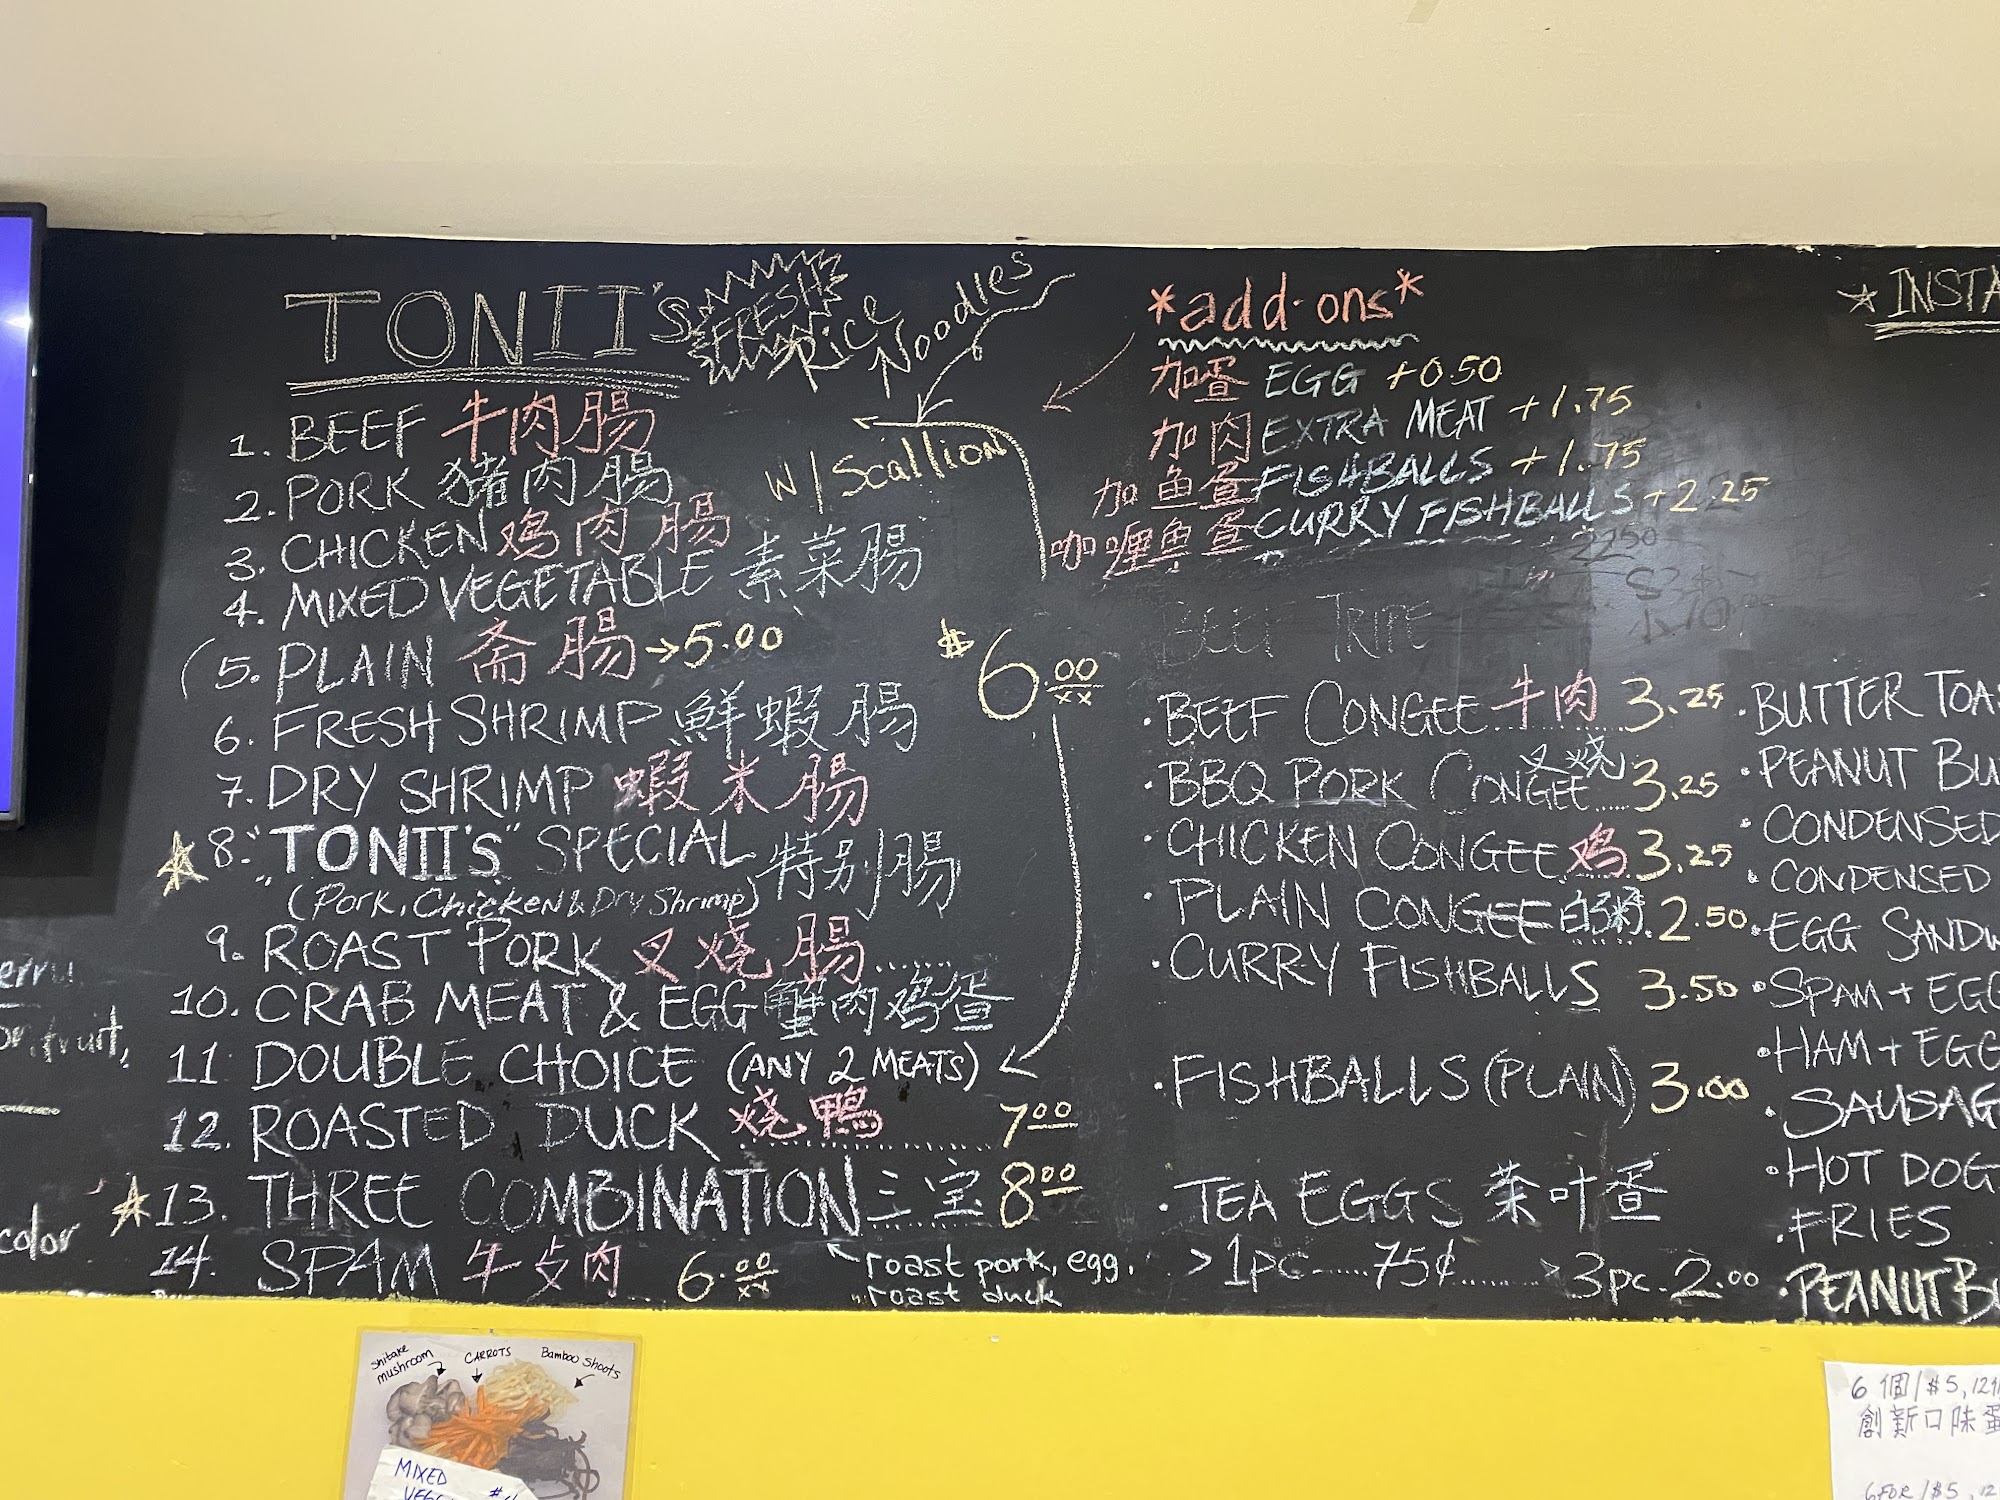 TONII's FRESH! Rice Noodles
1. BEEF 牛肉腸
2. PORK 猪肉腸
3. CHICKEN 鸡肉腸
4. MIXED VEGETABLE 素菜腸
(5. PLAIN 斋腸 →5.00
6. FRESH SHRIMP 鮮蝦腸
7. DRY SHRIMP 蝦米腸
8. "TONII'S" SPECIAL 特别腸
(Pork, Chicken & Dry Shrimp)
9. ROAST PORK 叉烧腸......
10. CRAB MEAT & EGG 蟹肉鸡蛋
11 DOUBLE CHOICE (ANY 2 MEATS)
12. ROASTED DUCK 烧鴨 ........ 7.00
13. THREE COMBINATION 三宝 8.00
roast pork, egg,
roast duck
14. SPAM 牛攴肉 6.00 xx
W/Scallion
$6.00 xx
*add-ons*
加蛋 EGG +0.50
加肉 EXTRA MEAT +1.75
加鱼蛋 FISHBALLS +1.75
咖喱鱼蛋 CURRY FISHBALLS +2.25
BEEF TRIPE
· BEEF CONGEE 牛肉 ...... 3.25
· BBQ PORK CONGEE 叉烧 ..... 3.25
· CHICKEN CONGEE 鸡 3.25
· PLAIN CONGEE 白粥. 2.50
· CURRY FISHBALLS 3.50
· FISHBALLS (PLAIN) 3.00
· TEA EGGS 茶叶蛋
>1pc.....75¢....... >3pc.2.00
☆ INSTA
· BUTTER TOA
· PEANUT BU
· CONDENSED
· CONDENSED
· EGG SANDW
· SPAM + EGG
· HAM + EGG
· SAUSAG
· HOT DOG
· FRIES
· PEANUT BU
erry
or. fruit,
color
Shitake mushroom
CARROTS
Bamboo Shoots
MIXED
6 個/$5, 12
創新口味蛋
6 FOR/$5, 12